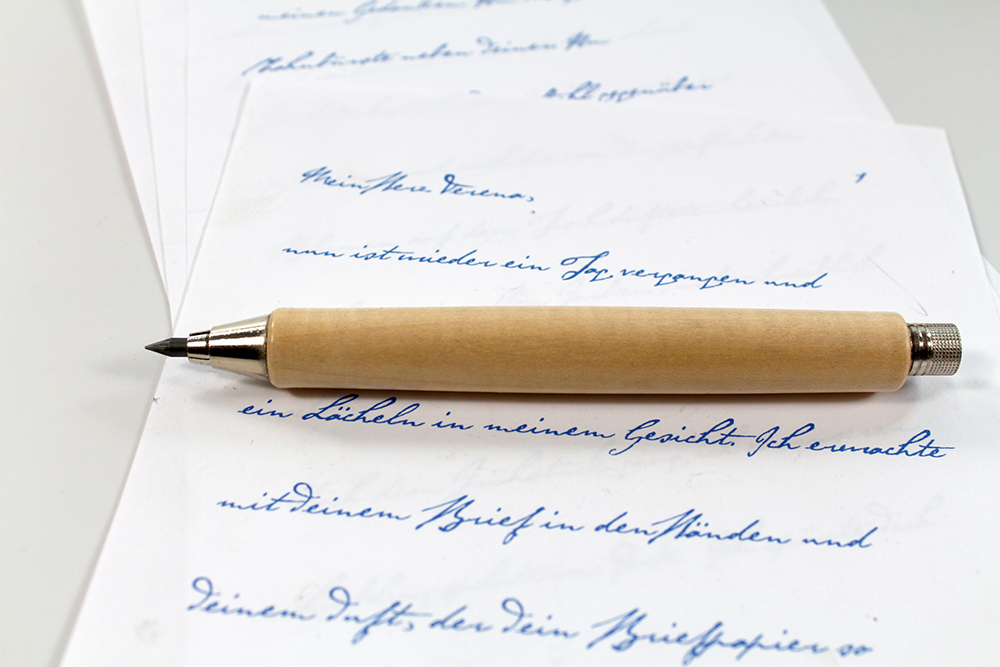 meinen Gedanken.
Zahnbürste neben deinen
gegenüber
Mein Herz Verena,
1
nun ist wieder ein Tag vergangen und
ein Lächeln in meinem Gesicht. Ich erwachte
mit deinem Brief in den Händen und
deinem Duft, der dein Briefpapier so